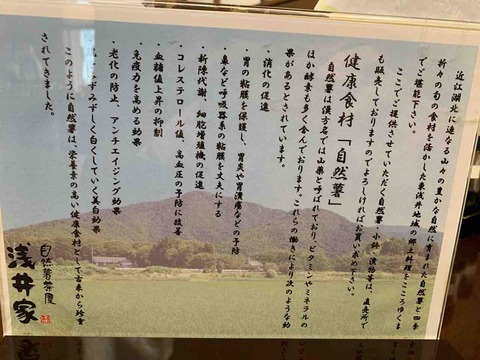 近江湖北に連なる山々の豊かな自然に育まれた自然薯と四季
折々の旬の食材を活かした東浅井地域の郷土料理をこころゆくま
でご堪能下さい。
ここでご提供させていただく自然薯、小鉢、漬物等は、直売所で
も販売しておりますのでよろしければお買い求め下さい。
健康食材「自然薯」
自然薯は漢方名では山薬と呼ばれており、ビタミンやミネラルの
ほか酵素も多く含んでおります。これらの働きにより次のような効
果があるとされています。
・消化の促進
・胃の粘膜を保護し、胃炎や胃潰瘍などの予防
・鼻など呼吸器系の粘膜を丈夫にする
・新陳代謝、細胞増殖機の促進
・コレステロール値、高血圧の予防に改善
・血糖値上昇の抑制
・免疫力を高める効果
・老化の防止、アンチエイジング効果
みずみずしく白くしていく美白効果
このように自然薯は、栄養素の高い健康食材として古来から珍重
されてきました。
自然薯茶屋
浅井家